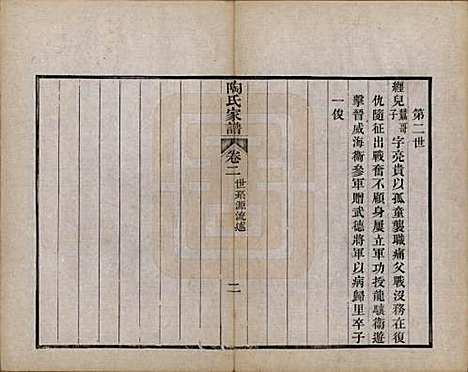 第二世
經兒鷟哥子字亮貴以孤童襲職痛父戰沒務在復
仇隨征出戰奮不顧身屢立軍功授龍驤衞遊
擊晉威海衞參軍贈武德將軍以病歸里卒子
一俊
陶氏家譜
卷二
世系源流述
二